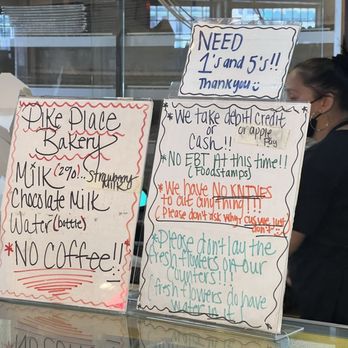 NEED
1's and 5's!!
Thank you
Pike Place
Bakery
Milk (2%)..
Strawberry
Milk
Chocolate Milk
Water (bottle)
*NO COFFEE!!
*We take debit/credit
or
or apple
Cash!!
pay
*NO EBT At this time!!
(Foodstamps)
*We have NO KNIVES
to cut anything!!!
Please don't ask why cus we just
don't
*Please don't lay the
fresh flowers on our
counters!!!
fresh flowers do have
water in it